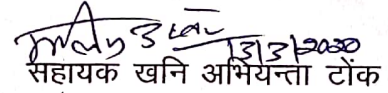 13/3/2020
सहायक खनि अभियन्ता टोंक